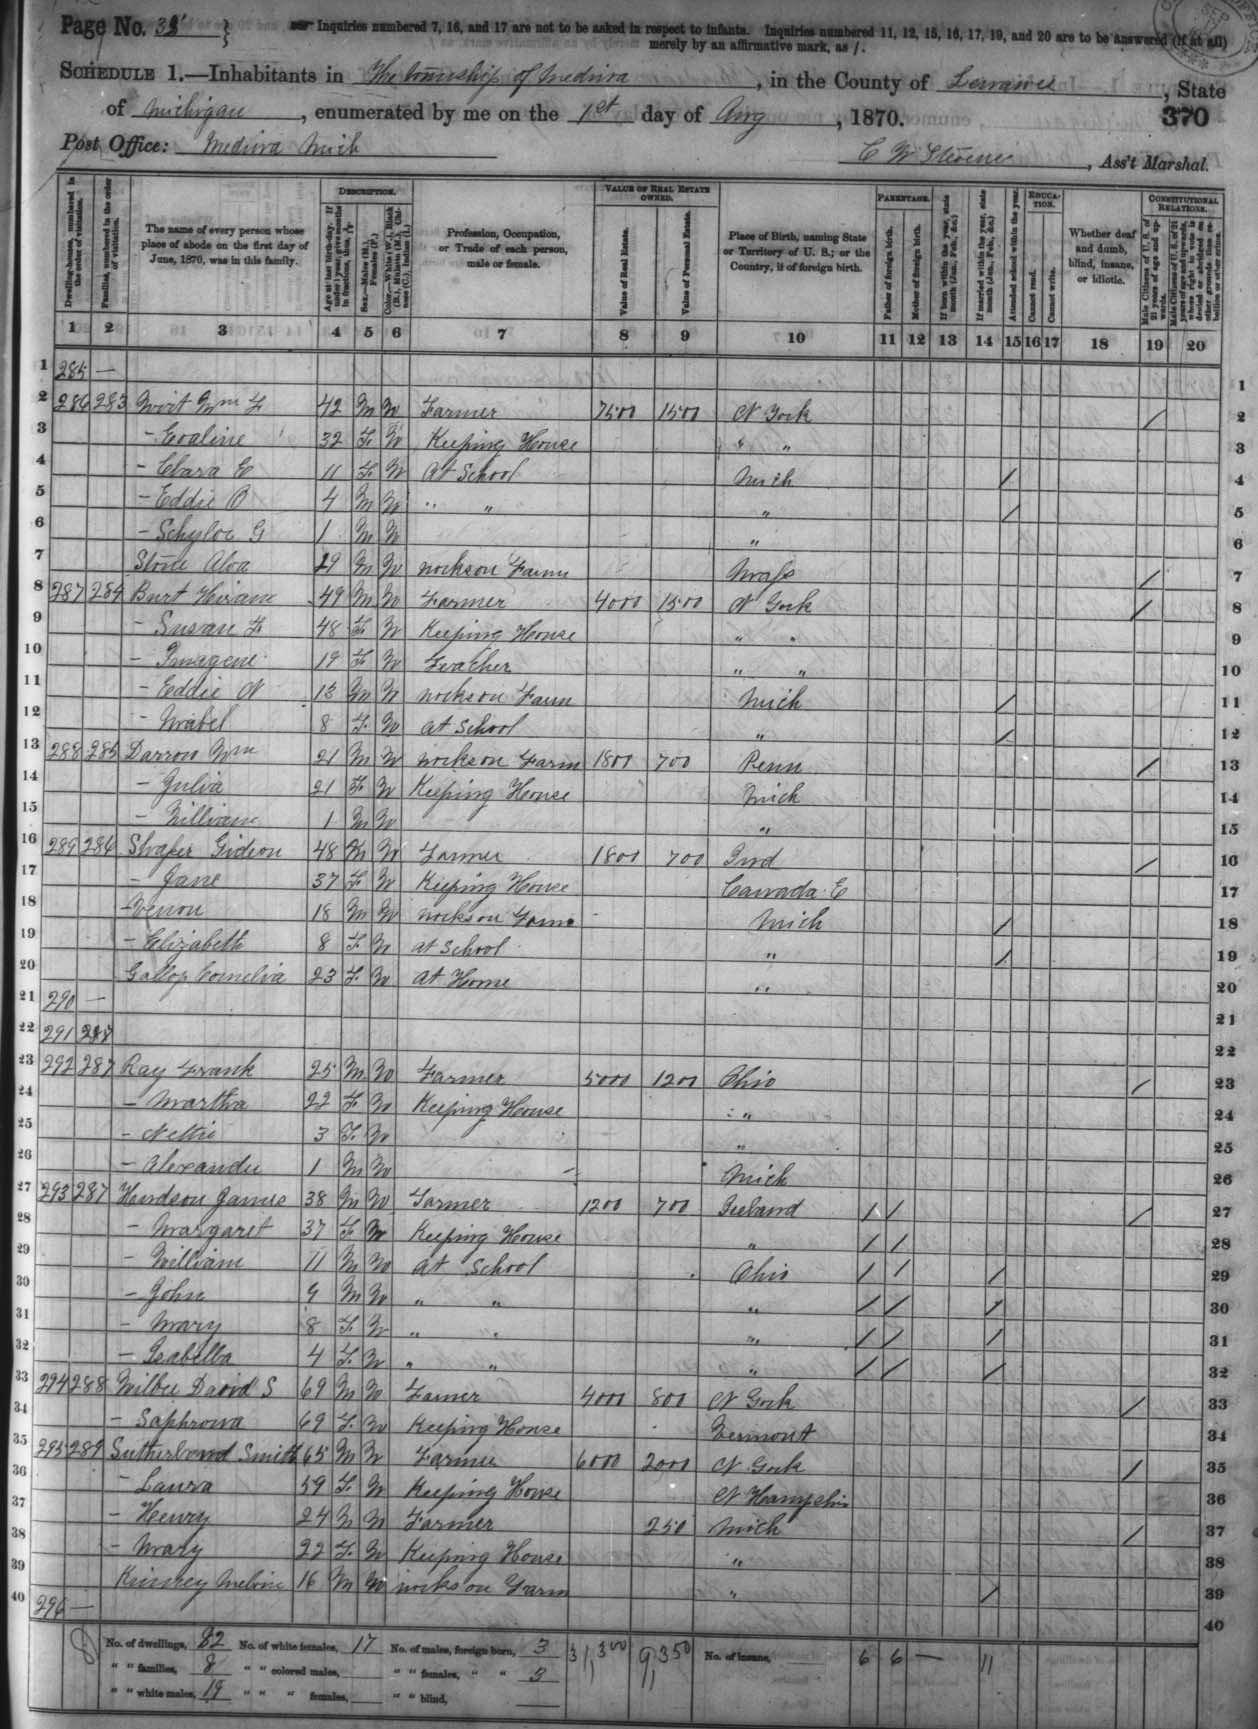 Page No. 38
Inquiries numbered 7, 16, and 17 are not to be asked in respect to infants. Inquiries numbered 11, 12, 15, 16, 17, 19, and 20 are to be answered (if at all)
merely by an affirmative mark, as /.
SCHEDULE 1.—Inhabitants in The township of Medina, in the County of Lenawee, State
of Michigan, enumerated by me on the 1st day of Aug, 1870. 370
Post Office: Medina Mich
C W Stevens, Ass't Marshal.
DESCRIPTION. VALUE OF REAL ESTATE OWNED. PARENTAGE. EDUCATION. CONSTITUTIONAL RELATIONS.
Dwelling-houses, numbered in the order of visitation.
Families, numbered in the order of visitation.
The name of every person whose place of abode on the first day of June, 1870, was in this family.
Age at last birth-day. If under 1 year, give months in fractions, thus, 3/12
Sex.—Males (M.), Females (F.)
Color.—White (W.), Black (B.), Mulatto (M.), Chinese (C.), Indian (I.)
Profession, Occupation, or Trade of each person, male or female.
Value of Real Estate.
Value of Personal Estate.
Place of Birth, naming State or Territory of U. S.; or the Country, if of foreign birth.
Father of foreign birth.
Mother of foreign birth.
If born within the year, state month (Jan., Feb., &c.)
If married within the year, state month (Jan., Feb., &c.)
Attended school within the year.
Cannot read.
Cannot write.
Whether deaf and dumb, blind, insane, or idiotic.
Male Citizens of U. S. of 21 years of age and upwards.
Male Citizens of U. S. of 21 years of age and upwards, whose right to vote is denied or abridged on other grounds than rebellion or other crime.
1 2 3 4 5 6 7 8 9 10 11 12 13 14 15 16 17 18 19 20
1 285 — 1
2 286 283 Wm F 42 M W Farmer 7500 1500 N York / 2
3 – Evaline 32 F W Keeping House " " 3
4 – Clara E 11 F W At School Mich / 4
5 – Eddie B 4 M W " " " / 5
6 – Schyler G 1 M W " 6
7 Stone Alva 19 M W works on Farm Mass / 7
8 287 284 Burt Hiram 49 M W Farmer 4000 1500 N York / 8
9 – Susan F 48 F W Keeping House " " 9
10 – Imagene 19 F W Teacher " " 10
11 – Eddie N 13 M W works on Farm Mich / 11
12 – Mabel 8 F W at School " / 12
13 288 285 Darrow Wm 21 M W works on Farm 1800 700 Penn / 13
14 – Julia 21 F W Keeping House Mich 14
15 – William 1 M W " 15
16 289 286 Shafer Gideon 48 M W Farmer 1800 700 Ind / 16
17 – Jane 37 F W Keeping House Canada E 17
18 – Venon 18 M W works on Farm Mich / 18
19 – Elizabeth 8 F W at School " / 19
20 Gallop Cornelia 23 F W At Home " 20
21 290 — 21
22 291 287 22
23 292 287 Ray Frank 25 M W Farmer 5000 1200 Ohio / 23
24 – Martha 22 F W Keeping House " 24
25 – Nettie 3 F W " 25
26 – Alexander 1 M W Mich 26
27 293 287 Hudson James 38 M W Farmer 1200 700 Ireland / / / 27
28 – Margaret 37 F W Keeping House " / / 28
29 – William 11 M W at School Ohio / / / 29
30 – John 9 M W " " " / / / 30
31 – Mary 8 F W " " " / / / 31
32 – Isabella 4 F W " " " / / / 32
33 294 288 Wilber David S 69 M W Farmer 4000 800 N York / 33
34 – Saphrona 69 F W Keeping House Vermont 34
35 295 289 Sutherland Smith 65 M W Farmer 6000 2000 N York / 35
36 – Laura 59 F W Keeping House N Hampshire 36
37 – Henry 24 M W Farmer 250 Mich / 37
38 – Mary 22 F W Keeping House " 38
39 Kinney Melvin 16 M W works on Farm " / 39
40 296 — 40
8 No. of dwellings, 82 No. of white females, 17 No. of males, foreign born, 3 31,300 9,350 No. of insane, 6 6 — 11
" " families, 8 " " colored males, " " females, " " 3
" " white males, 19 " " " females, " " blind,